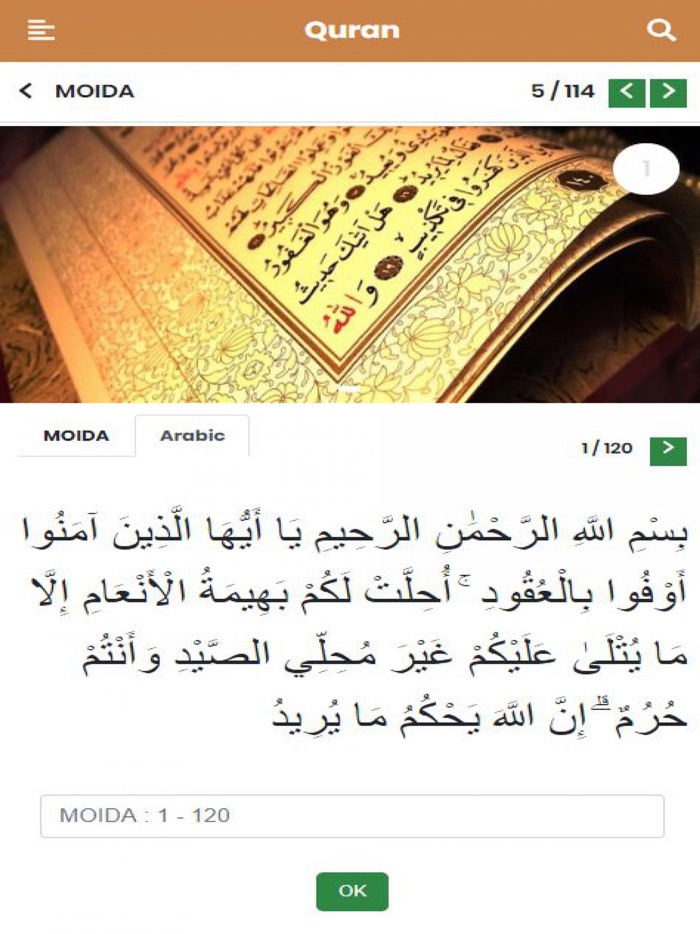 Quran
MOIDA
5 / 114
1
هَلْ أَتَىٰكَ حَدِيثُ
MOIDA
Arabic
1 / 120
بِسْمِ اللَّهِ الرَّحْمَٰنِ الرَّحِيمِ يَا أَيُّهَا الَّذِينَ آمَنُوا
أَوْفُوا بِالْعُقُودِ ۚ أُحِلَّتْ لَكُمْ بَهِيمَةُ الْأَنْعَامِ إِلَّا
مَا يُتْلَىٰ عَلَيْكُمْ غَيْرَ مُحِلِّي الصَّيْدِ وَأَنْتُمْ
حُرُمٌ ۗ إِنَّ اللَّهَ يَحْكُمُ مَا يُرِيدُ
MOIDA : 1 - 120
OK